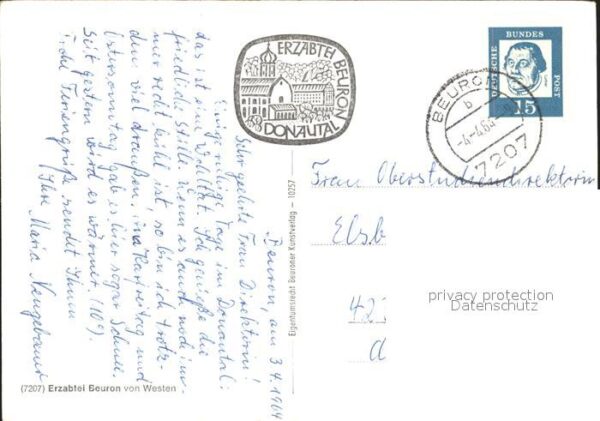 ERZABTEI BEURON
DONAUTAL
DEUTSCHE BUNDESPOST
15
BEURON
b
-4.-4.64
7207
Beuron, am 3.4.1964
Sehr geehrte Frau Direktorin!
Einige ruhige Tage im Donautal:
das ist eine Wohltat. Ich genieße die
friedliche Stille. Wenn es auch noch im-
mer recht kühl ist, so bin ich trotz-
dem viel draußen. Karfreitag und
Ostersonntag gab es hier sogar Schnee.
Seit gestern wird es wärmer (10°).
Frohe Feriengrüße sendet Ihnen
Ihre Maria Neugebauer
Eigentumsrecht Beuroner Kunstverlag – 10257
Frau Oberstudiendirektorin
Elsb
42
d
privacy protection
Datenschutz
(7207) Erzabtei Beuron von Westen